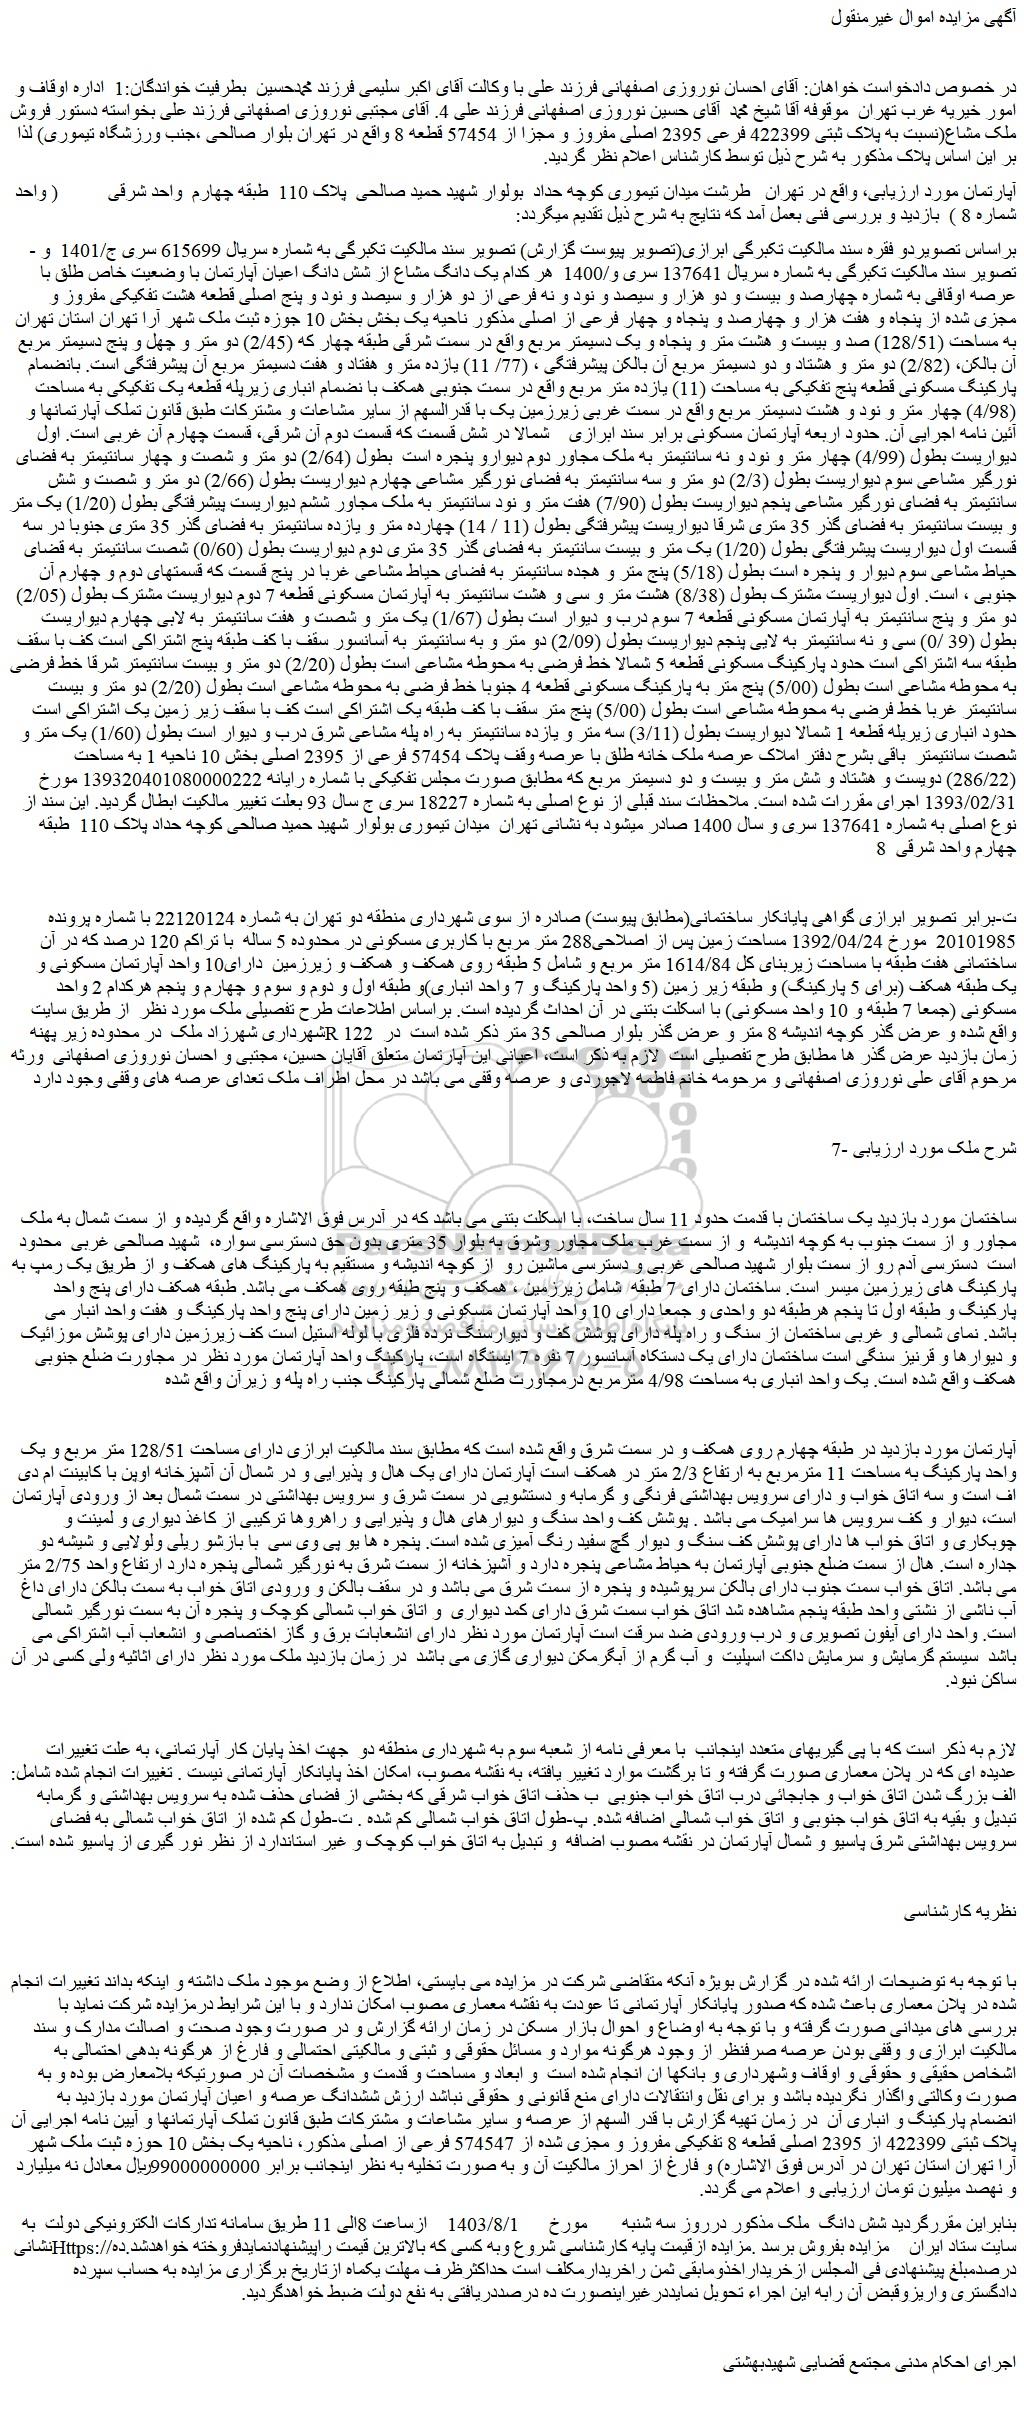 آگهی مزایده اموال غیرمنقول
در خصوص دادخواست خواهان: آقای احسان نوروزی اصفهانی فرزند علی با وکالت آقای اکبر سلیمی فرزند محمدحسین بطرفیت خواندگان:1 اداره اوقاف و
امور خیریه غرب تهران موقوفه آقا شیخ محمد آقای حسین نوروزی اصفهانی فرزند علی 4. آقای مجتبی نوروزی اصفهانی فرزند علی بخواسته دستور فروش
ملک مشاع(نسبت به پلاک ثبتی 422399 فرعی 2395 اصلی مفروز و مجزا از 57454 قطعه 8 واقع در تهران بلوار صالحی ،جنب ورزشگاه تیموری) لذا
بر این اساس پلاک مذکور به شرح ذیل توسط کارشناس اعلام نظر گردید.
آپارتمان مورد ارزیابی، واقع در تهران طرشت میدان تیموری کوچه حداد بولوار شهید حمید صالحی پلاک 110 طبقه چهارم واحد شرقی ( واحد
شماره 8 ) بازدید و بررسی فنی بعمل آمد که نتایج به شرح ذیل تقدیم میگردد:
براساس تصویردو فقره سند مالکیت تکبرگی ابرازی(تصویر پیوست گزارش) تصویر سند مالکیت تکبرگی به شماره سریال 615699 سری ج/1401 و -
تصویر سند مالکیت تکبرگی به شماره سریال 137641 سری و/1400 هر کدام یک دانگ مشاع از شش دانگ اعیان آپارتمان با وضعیت خاص طلق با
عرصه اوقافی به شماره چهارصد و بیست و دو هزار و سیصد و نود و نه فرعی از دو هزار و سیصد و نود و پنج اصلی قطعه هشت تفکیکی مفروز و
مجزی شده از پنجاه و هفت هزار و چهارصد و پنجاه و چهار فرعی از اصلی مذکور ناحیه یک بخش بخش 10 جوزه ثبت ملک شهر آرا تهران استان تهران
به مساحت (128/51) صد و بیست و هشت متر و پنجاه و یک دسیمتر مربع واقع در سمت شرقی طبقه چهار که (2/45) دو متر و چهل و پنج دسیمتر مربع
آن بالکن، (2/82) دو متر و هشتاد و دو دسیمتر مربع آن بالکن پیشرفتگی ، (77/ 11) یازده متر و هفتاد و هفت دسیمتر مربع آن پیشرفتگی است. بانضمام
پارکینگ مسکونی قطعه پنج تفکیکی به مساحت (11) یازده متر مربع واقع در سمت جنوبی همکف با نضمام انباری زیرپله قطعه یک تفکیکی به مساحت
(4/98) چهار متر و نود و هشت دسیمتر مربع واقع در سمت غربی زیرزمین یک با قدرالسهم از سایر مشاعات و مشترکات طبق قانون تملک آپارتمانها و
آئین نامه اجرایی آن. حدود اربعه آپارتمان مسکونی برابر سند ابرازی شمالا در شش قسمت که قسمت دوم آن شرقی، قسمت چهارم آن غربی است. اول
دیواریست بطول (4/99) چهار متر و نود و نه سانتیمتر به ملک مجاور دوم دیوارو پنجره است بطول (2/64) دو متر و شصت و چهار سانتیمتر به فضای
نورگیر مشاعی سوم دیواریست بطول (2/3) دو متر و سه سانتیمتر به فضای نورگیر مشاعی چهارم دیواریست بطول (2/66) دو متر و شصت و شش
سانتیمتر به فضای نورگیر مشاعی پنجم دیواریست بطول (7/90) هفت متر و نود سانتیمتر به ملک مجاور ششم دیواریست پیشرفتگی بطول (1/20) یک متر
و بیست سانتیمتر به فضای گذر 35 متری شرقا دیواریست پیشرفتگی بطول (11 / 14) چهارده متر و یازده سانتیمتر به فضای گذر 35 متری جنوبا در سه
قسمت اول دیواریست پیشرفتگی بطول (1/20) یک متر و بیست سانتیمتر به فضای گذر 35 متری دوم دیواریست بطول (0/60) شصت سانتیمتر به فضای
حیاط مشاعی سوم دیوار و پنجره است بطول (5/18) پنج متر و هجده سانتیمتر به فضای حیاط مشاعی غربا در پنج قسمت که قسمتهای دوم و چهارم آن
جنوبی ، است. اول دیواریست مشترک بطول (8/38) هشت متر و سی و هشت سانتیمتر به آپارتمان مسکونی قطعه 7 دوم دیواریست مشترک بطول (2/05)
دو متر و پنج سانتیمتر به آپارتمان مسکونی قطعه 7 سوم درب و دیوار است بطول (1/67) یک متر و شصت و هفت سانتیمتر به لابی چهارم دیواریست
بطول (39 /0) سی و نه سانتیمتر به لابی پنجم دیواریست بطول (2/09) دو متر و به سانتیمتر به آسانسور سقف با کف طبقه پنج اشتراکی است کف با سقف
طبقه سه اشتراکی است حدود پارکینگ مسکونی قطعه 5 شمالا خط فرضی به محوطه مشاعی است بطول (2/20) دو متر و بیست سانتیمتر شرقا خط فرضی
به محوطه مشاعی است بطول (5/00) پنج متر به پارکینگ مسکونی قطعه 4 جنوبا خط فرضی به محوطه مشاعی است بطول (2/20) دو متر و بیست
سانتیمتر غربا خط فرضی به محوطه مشاعی است بطول (5/00) پنج متر سقف با کف طبقه یک اشتراکی است کف با سقف زیر زمین یک اشتراکی است
حدود انباری زیرپله قطعه 1 شمالا دیواریست بطول (3/11) سه متر و یازده سانتیمتر به راه پله مشاعی شرق درب و دیوار است بطول (1/60) یک متر و
شصت سانتیمتر باقی بشرح دفتر املاک عرصه ملک خانه طلق با عرصه وقف پلاک 57454 فرعی از 2395 اصلی بخش 10 ناحیه 1 به مساحت
(286/22) دویست و هشتاد و شش متر و بیست و دو دسیمتر مربع که مطابق صورت مجلس تفکیکی با شماره رایانه 139320401080000222 مورخ
1393/02/31 اجرای مقررات شده است. ملاحظات سند قبلی از نوع اصلی به شماره 18227 سری ج سال 93 بعلت تغییر مالکیت ابطال گردید. این سند از
نوع اصلی به شماره 137641 سری و سال 1400 صادر میشود به نشانی تهران میدان تیموری بولوار شهید حمید صالحی کوچه حداد پلاک 110 طبقه
چهارم واحد شرقی 8
ت-برابر تصویر ابرازی گواهی پایانکار ساختمانی(مطابق پیوست) صادره از سوی شهرداری منطقه دو تهران به شماره 22120124 با شماره پرونده
20101985 مورخ 1392/04/24 مساحت زمین پس از اصلاحی288 متر مربع با کاربری مسکونی در محدوده 5 ساله با تراکم 120 درصد که در آن
ساختمانی هفت طبقه با مساحت زیربنای کل 1614/84 متر مربع و شامل 5 طبقه روی همکف و همکف و زیرزمین دارای10 واحد آپارتمان مسکونی و
یک طبقه همکف (برای 5 پارکینگ) و طبقه زیر زمین (5 واحد پارکینگ و 7 واحد انباری)و طبقه اول و دوم و سوم و چهارم و پنجم هرکدام 2 واحد
مسکونی (جمعا 7 طبقه و 10 واحد مسکونی) با اسکلت بتنی در آن احداث گردیده است. براساس اطلاعات طرح تفصیلی ملک مورد نظر از طریق سایت
واقع شده و عرض گذر کوچه اندیشه 8 متر و عرض گذر بلوار صالحی 35 متر ذکر شده است در R 122شهرداری شهرزاد ملک در محدوده زیر پهنه
زمان بازدید عرض گذر ها مطابق طرح تفصیلی است لازم به ذکر است، اعیانی این آپارتمان متعلق آقایان حسین، مجتبی و احسان نوروزی اصفهانی ورثه
مرحوم آقای علی نوروزی اصفهانی و مرحومه خانم فاطمه لاجوردی و عرصه وقفی می باشد در محل اطراف ملک تعدای عرصه های وقفی وجود دارد
شرح ملک مورد ارزیابی -7
ساختمان مورد بازدید یک ساختمان با قدمت حدود 11 سال ساخت، با اسکلت بتنی می باشد که در آدرس فوق الاشاره واقع گردیده و از سمت شمال به ملک
مجاور و از سمت جنوب به کوچه اندیشه و از سمت غرب ملک مجاور وشرق به بلوار 35 متری بدون حق دسترسی سواره، شهید صالحی غربی محدود
است دسترسی آدم رو از سمت بلوار شهید صالحی غربی و دسترسی ماشین رو از کوچه اندیشه و مستقیم به پارکینگ های همکف و از طریق یک رمپ به
پارکینگ های زیرزمین میسر است. ساختمان دارای 7 طبقه شامل زیرزمین ، همکف و پنج طبقه روی همکف می باشد. طبقه همکف دارای پنج واحد
پارکینگ و طبقه اول تا پنجم هرطبقه دو واحدی و جمعا دارای 10 واحد آپارتمان مسکونی و زیر زمین دارای پنج واحد پارکینگ و هفت واحد انبار می
باشد. نمای شمالی و غربی ساختمان از سنگ و راه پله دارای پوشش کف و دیوار سنگ نرده فلزی با لوله استیل است کف زیرزمین دارای پوشش موزائیک
و دیوارها و قرنیز سنگی است ساختمان دارای یک دستگاه آسانسور 7 نفره 7 ایستگاه است، پارکینگ واحد آپارتمان مورد نظر در مجاورت ضلع جنوبی
همکف واقع شده است. یک واحد انباری به مساحت 4/98 مترمربع درمجاورت ضلع شمالی پارکینگ جنب راه پله و زیرآن واقع شده
آپارتمان مورد بازدید در طبقه چهارم روی همکف و در سمت شرق واقع شده است که مطابق سند مالکیت ابرازی دارای مساحت 128/51 متر مربع و یک
واحد پارکینگ به مساحت 11 مترمربع به ارتفاع 2/3 متر در همکف است آپارتمان دارای یک هال و پذیرایی و در شمال آن آشپزخانه اوپن با کابینت ام دی
اف است و سه اتاق خواب و دارای سرویس بهداشتی فرنگی و گرمابه و دستشویی در سمت شرق و سرویس بهداشتی در سمت شمال بعد از ورودی آپارتمان
است، دیوار و کف سرویس ها سرامیک می باشد . پوشش کف واحد سنگ و دیوارهای هال و پذیرایی و راهروها ترکیبی از کاغذ دیواری و لمینت و
چوبکاری و اتاق خواب ها دارای پوشش کف سنگ و دیوار گچ سفید رنگ آمیزی شده است. پنجره ها یو پی وی سی با بازشو ریلی ولولایی و شیشه دو
جداره است. هال از سمت ضلع جنوبی آپارتمان به حیاط مشاعی پنجره دارد و آشپزخانه از سمت شرق به نورگیر شمالی پنجره دارد ارتفاع واحد 2/75 متر
می باشد. اتاق خواب سمت جنوب دارای بالکن سرپوشیده و پنجره از سمت شرق می باشد و در سقف بالکن و ورودی اتاق خواب به سمت بالکن دارای داغ
آب ناشی از نشتی واحد طبقه پنجم مشاهده شد اتاق خواب سمت شرق دارای کمد دیواری و اتاق خواب شمالی کوچک و پنجره آن به سمت نورگیر شمالی
است. واحد دارای آیفون تصویری و درب ورودی ضد سرقت است آپارتمان مورد نظر دارای انشعابات برق و گاز اختصاصی و انشعاب آب اشتراکی می
باشد سیستم گرمایش و سرمایش داکت اسپلیت و آب گرم از آبگرمکن دیواری گازی می باشد در زمان بازدید ملک مورد نظر دارای اثاثیه ولی کسی در آن
ساکن نبود.
لازم به ذکر است که با پی گیریهای متعدد اینجانب با معرفی نامه از شعبه سوم به شهرداری منطقه دو جهت اخذ پایان کار آپارتمانی، به علت تغییرات
عدیده ای که در پلان معماری صورت گرفته و تا برگشت موارد تغییر یافته، به نقشه مصوب، امکان اخذ پایانکار آپارتمانی نیست . تغییرات انجام شده شامل:
الف بزرگ شدن اتاق خواب و جابجائی درب اتاق خواب جنوبی ب حذف اتاق خواب شرقی که بخشی از فضای حذف شده به سرویس بهداشتی و گرمابه
تبدیل و بقیه به اتاق خواب جنوبی و اتاق خواب شمالی اضافه شده. پ-طول اتاق خواب شمالی کم شده . ت-طول کم شده از اتاق خواب شمالی به فضای
سرویس بهداشتی شرق پاسیو و شمال آپارتمان در نقشه مصوب اضافه و تبدیل به اتاق خواب کوچک و غیر استاندارد از نظر نور گیری از پاسیو شده است.
نظریه کارشناسی
با توجه به توضیحات ارائه شده در گزارش بویژه آنکه متقاضی شرکت در مزایده می بایستی، اطلاع از وضع موجود ملک داشته و اینکه بداند تغییرات انجام
شده در پلان معماری باعث شده که صدور پایانکار آپارتمانی تا عودت به نقشه معماری مصوب امکان ندارد و با این شرایط درمزایده شرکت نماید با
بررسی های میدانی صورت گرفته و با توجه به اوضاع و احوال بازار مسکن در زمان ارائه گزارش و در صورت وجود صحت و اصالت مدارک و سند
مالکیت ابرازی و وقفی بودن عرصه صرفنظر از وجود هرگونه موارد و مسائل حقوقی و ثبتی و مالکیتی احتمالی و فارغ از هرگونه بدهی احتمالی به
اشخاص حقیقی و حقوقی و اوقاف وشهرداری و بانکها ان انجام شده است و ابعاد و مساحت و قدمت و مشخصات آن در صورتیکه بلامعارض بوده و به
صورت وکالتی واگذار نگردیده باشد و برای نقل وانتقالات دارای منع قانونی و حقوقی نباشد ارزش ششدانگ عرصه و اعیان آپارتمان مورد بازدید به
انضمام پارکینگ و انباری آن در زمان تهیه گزارش با قدر السهم از عرصه و سایر مشاعات و مشترکات طبق قانون تملک آپارتمانها و آیین نامه اجرایی آن
پلاک ثبتی 422399 از 2395 اصلی قطعه 8 تفکیکی مفروز و مجزی شده از 574547 فرعی از اصلی مذکور، ناحیه یک بخش 10 حوزه ثبت ملک شهر
آرا تهران استان تهران در آدرس فوق الاشاره) و فارغ از احراز مالکیت آن و به صورت تخلیه به نظر اینجانب برابر 99000000000ریال معادل نه میلیارد
و نهصد میلیون تومان ارزیابی و اعلام می گردد.
بنابراین مقررگردید شش دانگ ملک مذکور درروز سه شنبه مورخ 1403/8/1 ازساعت 8الی 11 طریق سامانه تدارکات الکترونیکی دولت به
سایت ستاد ایران مزایده بفروش برسد .مزایده ازقیمت پایه کارشناسی شروع وبه کسی که بالاترین قیمت راپیشنهادنمایدفروخته خواهدشد.ده//:Httpsنشانی
درصدمبلغ پیشنهادی فی المجلس ازخریداراخذومابقی ثمن راخریدارمکلف است حداکثرظرف مهلت یکماه ازتاریخ برگزاری مزایده به حساب سپرده
دادگستری واریزوقبض آن رابه این اجراء تحویل نمایددرغیراینصورت ده درصددریافتی به نفع دولت ضبط خواهدگردید.
اجرای احکام مدنی مجتمع قضایی شهیدبهشتی
ParsNamadData
پایگاه اطلاع رسانی مناقصه و مزایده
۰۲۱-۸۸۳۴۹۶۷۰-۵